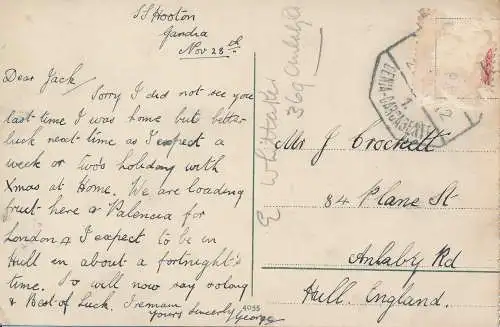 SS Hooton
Gandia
Nov 28th
Dear Jack
Sorry I did not see you
last time I was home but better
luck next time as I expect a
week or two's holiday with
Xmas at Home. We are loading
fruit here & Valencia for
London & I expect to be in
Hull in about a fortnight's
time. So will now say solong
& Best of Luck. I remain
Yours Sincerely
George
4055
E Whittaker
369 Anlaby Rd
Mr J Crockett
84 Plane St
Anlaby Rd
Hull. England.